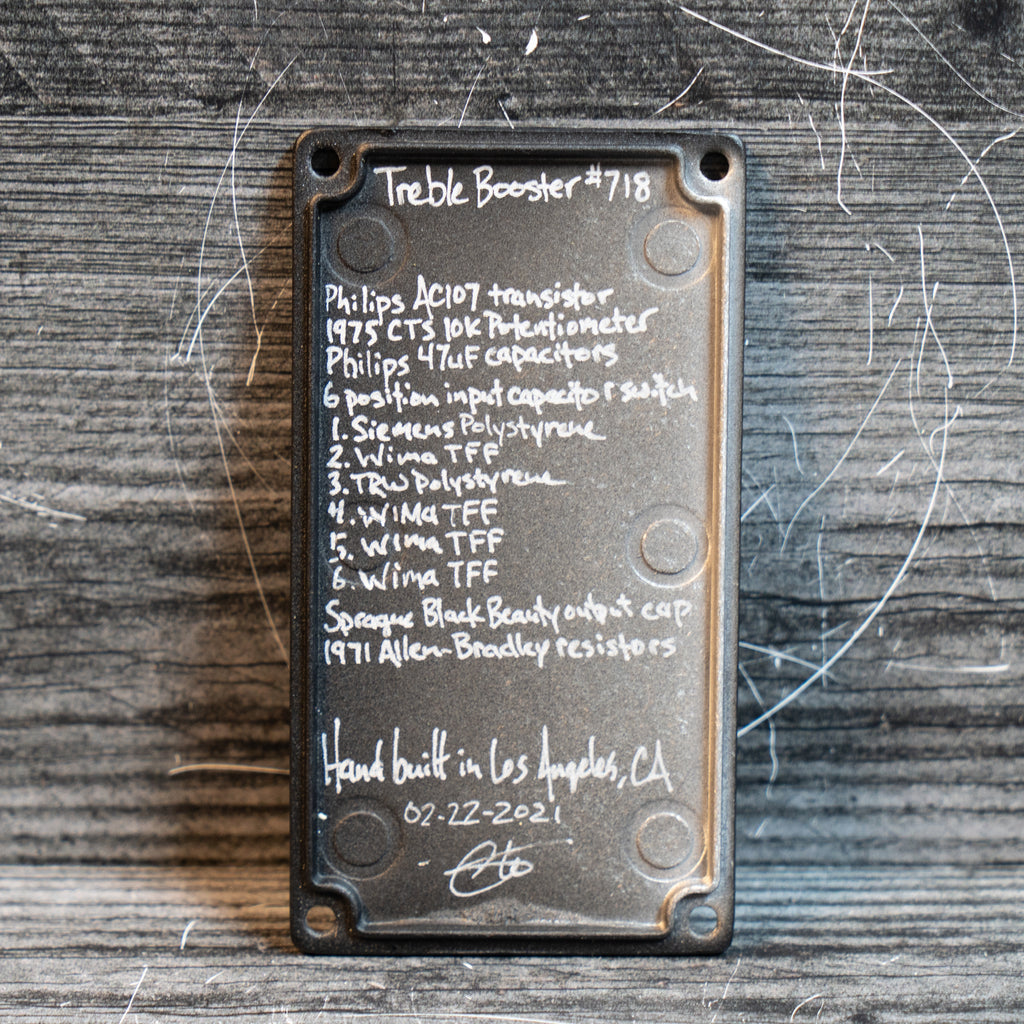 Treble Booster #718
Philips AC107 transistor
1975 CTS 10K Potentiometer
Philips 47uF capacitors
6 position input capacitor switch
1. Siemens Polystyrene
2. Wima TFF
3. TRW Polystyrene
4. WIMA TFF
5. Wima TFF
6. Wima TFF
Sprague Black Beauty output cap
1971 Allen-Bradley resistors
Hand built in Los Angeles, CA
02-22-2021